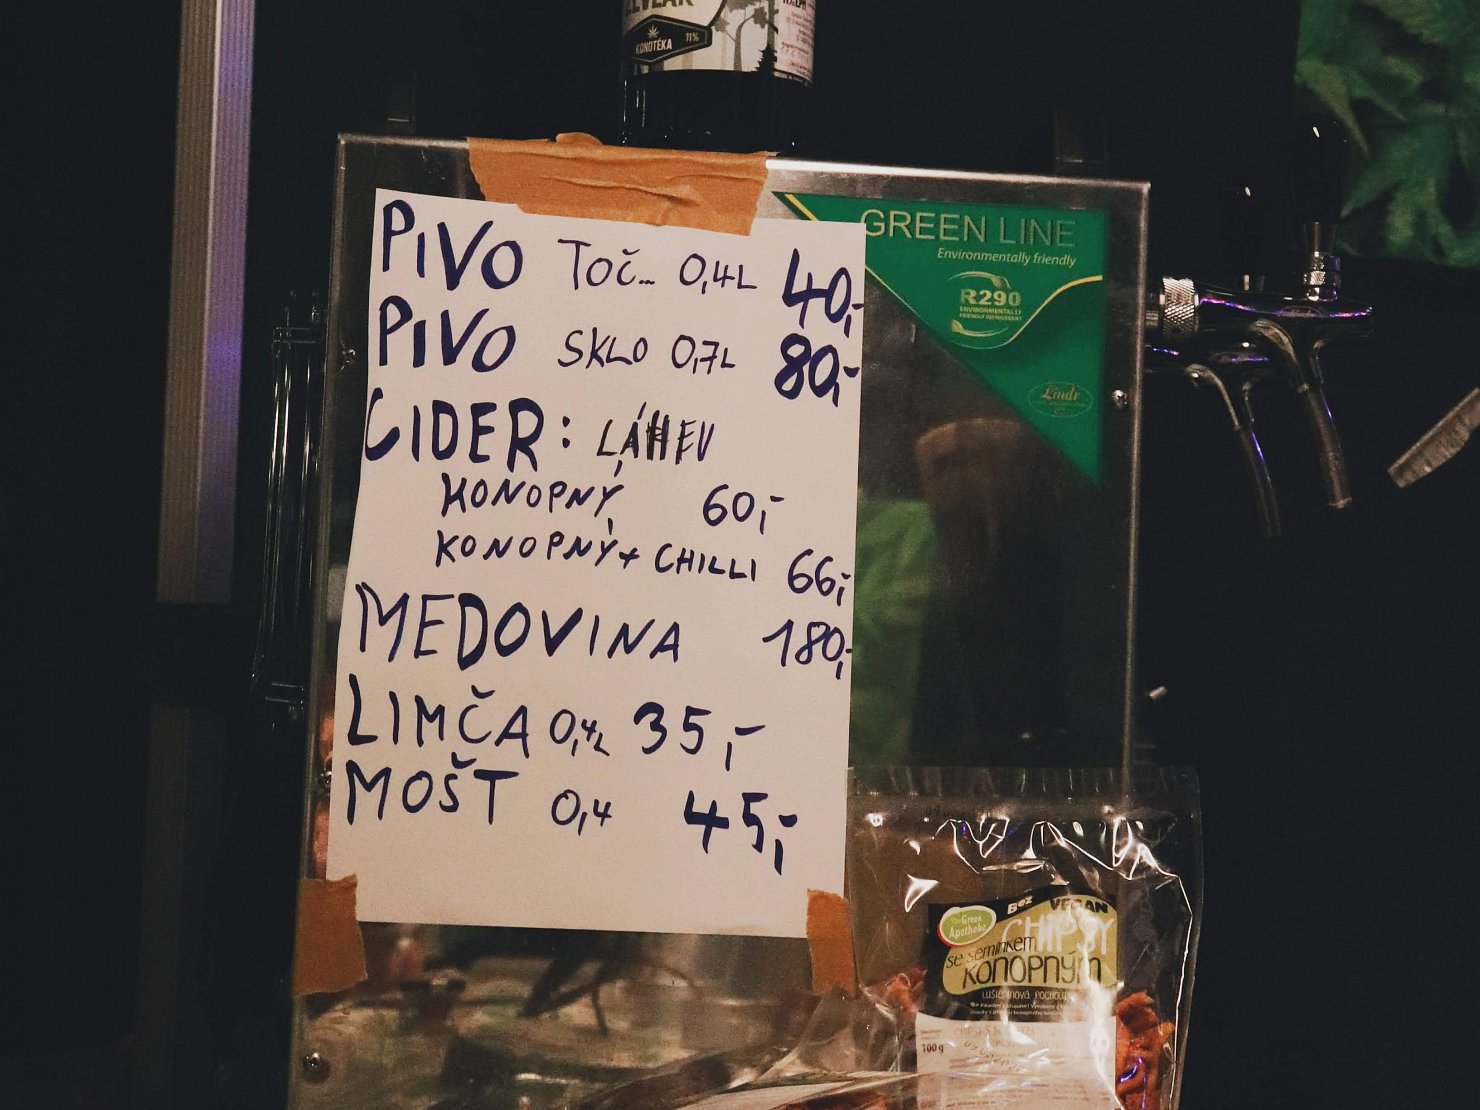 KONOTÉKA
11%
PIVO TOČ... 0,4L 40,-
PIVO SKLO 0,7L 80,-
CIDER: LÁHEV
KONOPNÝ 60,-
KONOPNÝ + CHILLI 66,-
MEDOVINA 180,-
LIMČA 0,4L 35,-
MOŠT 0,4 45,-
GREEN LINE
Environmentally friendly
R290
ENVIRONMENTALLY
FRIENDLY REFRIGERANT
Lindr
Green
Apotheke
VEGAN
CHIPSY
se semínkem
KONOPNÝM
100 g